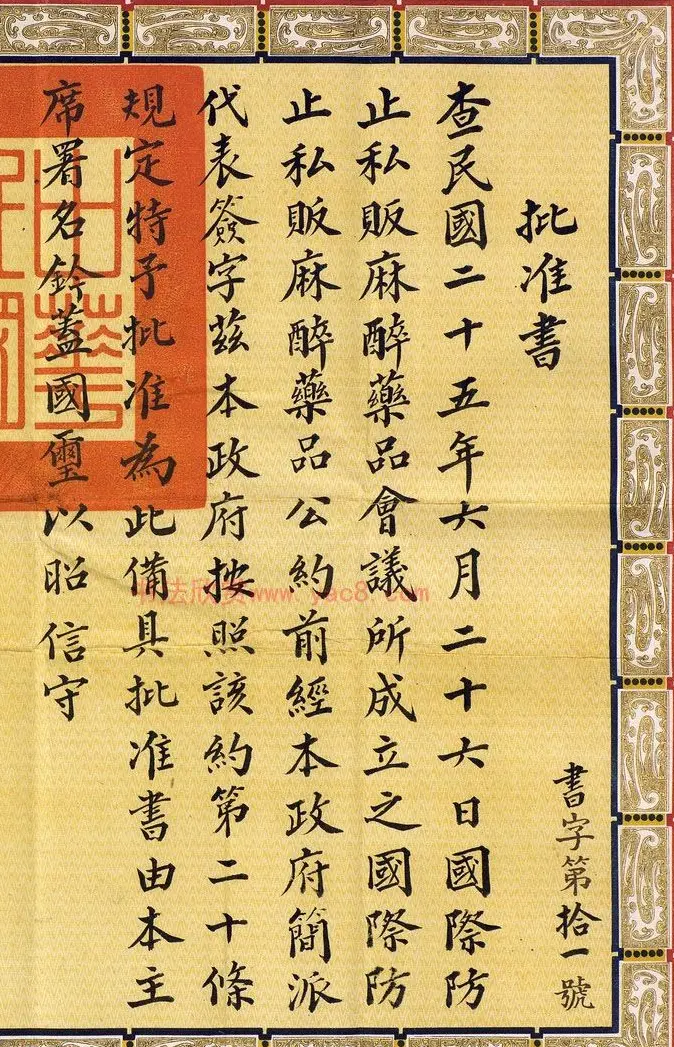 批准書
書字第拾一號
查民國二十五年六月二十六日國際防
止私販麻醉藥品會議所成立之國際防
止私販麻醉藥品公約前經本政府簡派
代表簽字茲本政府按照該約第二十條
規定特予批准為此備具批准書由本主
席署名鈐蓋國璽以昭信守
中華
书法欣赏www.yac8.com